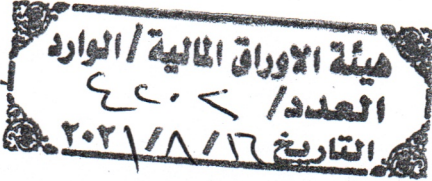 هيئة الاوراق المالية / الوارد
العدد / ٤٢٠٢
التاريخ ١٦ / ٨ / ٢٠٢١